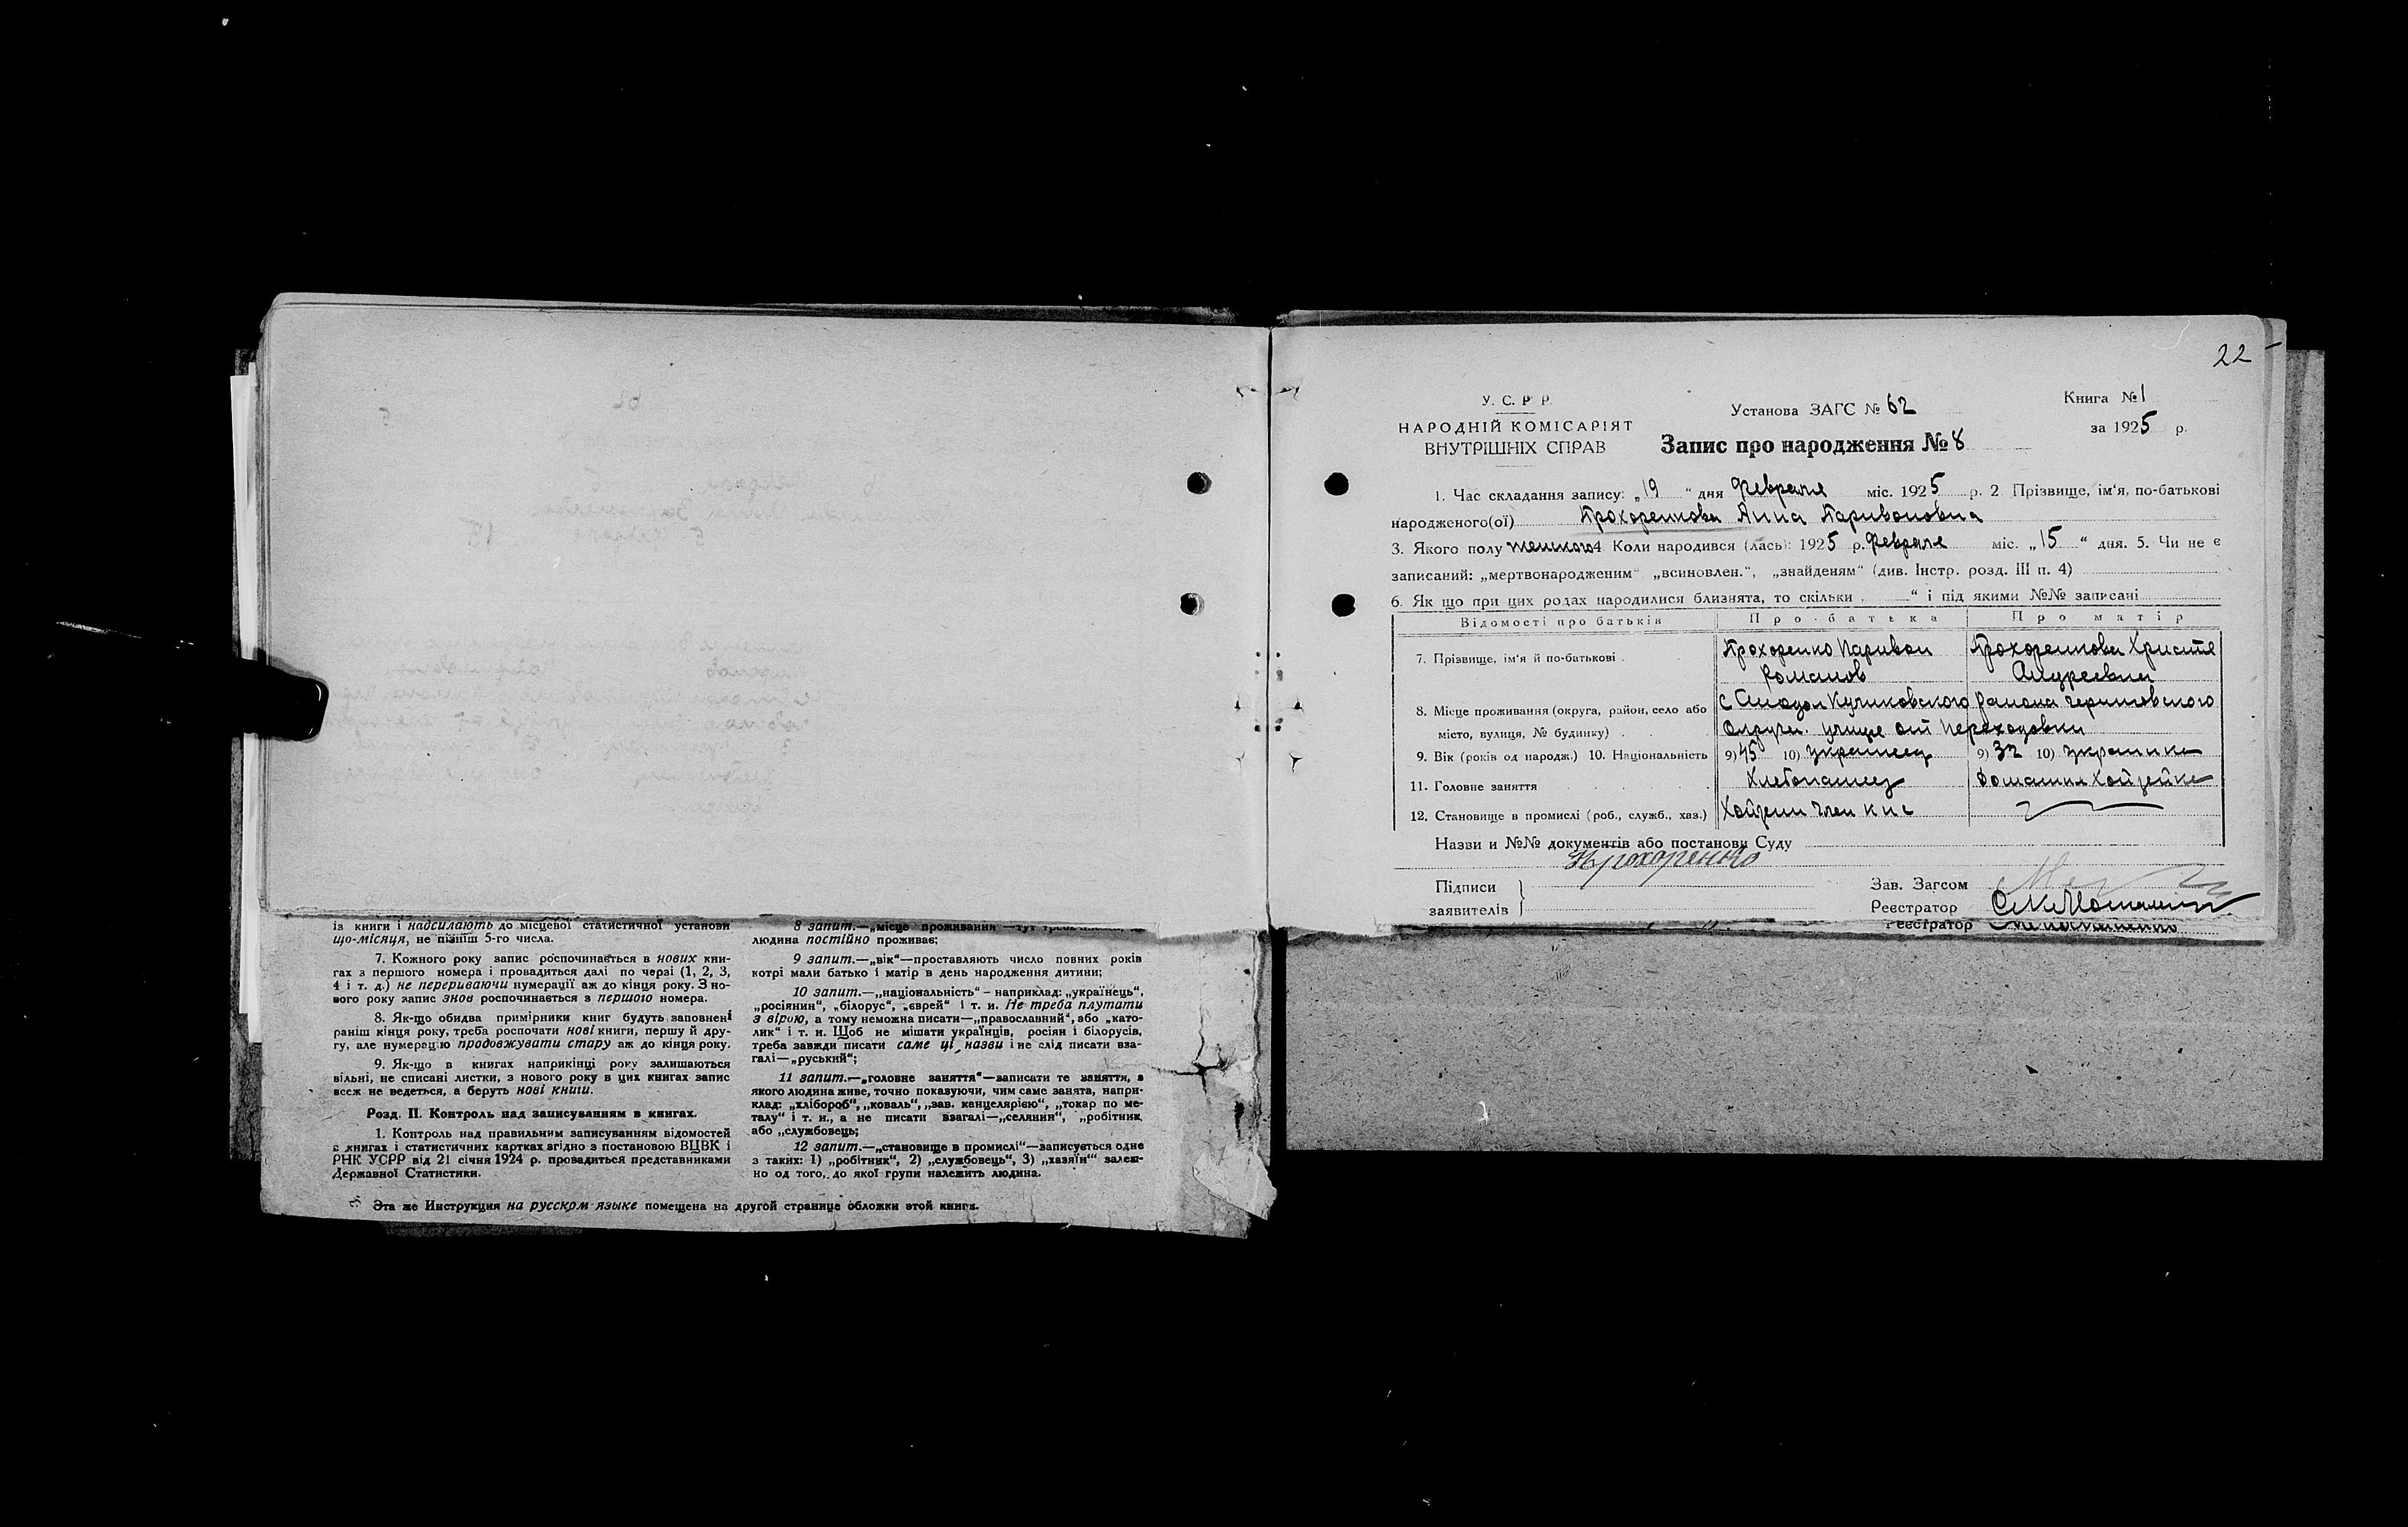 із книги і надсилають до місцевої статистичної установи
що-місяця, не пізніш 5-го числа.
7. Кожного року запис роспочинається в нових кни-
гах з першого номера і провадиться далі по черзі (1, 2, 3,
4 і т. д.) не перериваючи нумерації аж до кінця року. З но-
вого року запис знов роспочинається з першого номера.
8. Як-що обидва примірники книг будуть заповнені
раніш кінця року, треба роспочати нові книги, першу й дру-
гу, але нумерацію продовжувати стару аж до кінця року.
9. Як-що в книгах наприкінці року залишаються
вільні, не списані листки, з нового року в цих книгах запис
всеж не ведеться, а беруть нові книги.
Розд. II. Контроль над записуванням в книгах.
1. Контроль над правильним записуванням відомостей
в книгах і статистичних картках згідно з постановою ВЦВК і
РНК УСРР від 21 січня 1924 р. провадиться представниками
Державної Статистики.
8 запит.—„місце проживання“—тут
людина постійно проживає;
9 запит.—„вік“—проставляють число повних років
котрі мали батько і матір в день народження дитини;
10 запит.—„національність“ – наприклад: „українець“,
„росіянин“, „білорус“, „єврей“ і т. и. Не треба плутати
з вірою, а тому неможна писати—„православний“, або „като-
лик“ і т. и. Щоб не мішати українців, росіян і білорусів,
треба завжди писати саме ці назви і не слід писати вза-
галі—„руський“;
11 запит.—„головне заняття“—записати те заняття, з
якого людина живе, точно показуючи, чим саме занята, напри-
клад: „хлібороб“, „коваль“, „зав. канцелярією“, „токар по ме-
талу“ і т. и., а не писати взагалі—„селянин“, „робітник
або „службовець;
12 запит.—„становище в промислі“—записується одне
з таких: 1) „робітник“, 2) „службовець“, 3) „хазяїн“ залеж-
но од того, до якої групи належить людина.
Эта же Инструкция на русском языке помещена на другой странице обложки этой книги.
22
У. С. Р. Р.
НАРОДНІЙ КОМІСАРІЯТ
ВНУТРІШНІХ СПРАВ
Установа ЗАГС № 62
Запис про народження № 8
Книга № 1
за 1925 р.
1. Час складання запису: „19“ дня Февраля міс. 1925 р. 2 Прізвище, ім‘я, по-батькові
народженого(ої) Прохоренкова Анна Паривоновна
3. Якого полу женского 4 Коли народився (лась): 1925 р. Февраля міс. „15“ дня. 5. Чи не є
записаний: „мертвонародженим“ „всиновлен.“, „знайденям“ (див. Інстр. розд. III п. 4)
6. Як що при цих родах народилися близнята, то скільки „ “ і під якими №№ записані
Відомості про батьків Про батька Про матір
7. Прізвище, ім‘я й по-батькові Прохоренко Паривон Прохоренкова Христя
Романов Андреевна
8. Місце проживання (округа, район, село або с Куликовского района Черниговского
місто, вулиця, № будинку) Округи. улице от Переходовки
9. Вік (років од народж.) 10. Національність 9) 45 10) украинец 9) 32 10) украинка
11. Головне заняття Хлебопашец Домашня Хозрейка
12. Становище в промислі (роб., служб., хаз.) Хозреин член кнс
Назви и №№ документів або постанови Суду
Прохоренко
Підписи
заявителів
Зав. Загсом
Реєстратор
Реєстратор